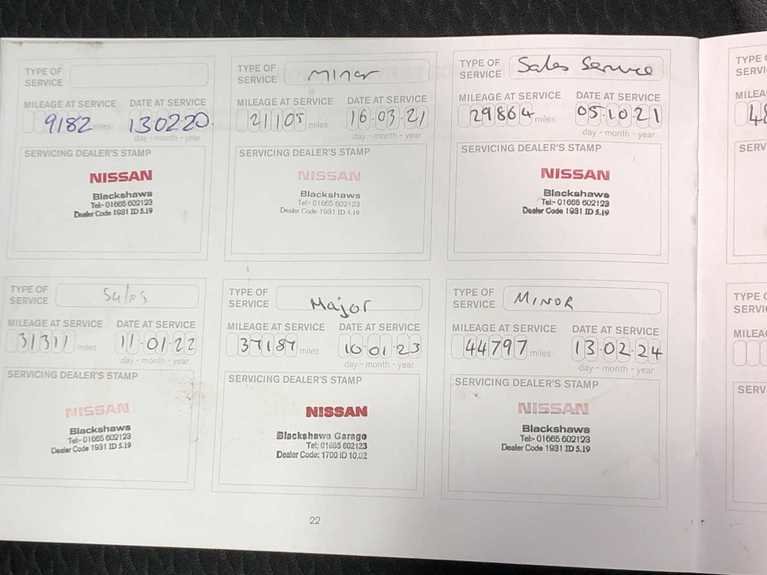 TYPE OF
SERVICE
MILEAGE AT SERVICE DATE AT SERVICE
9182 miles 13 02 20
SERVICING DEALER'S STAMP
NISSAN
Blackshaws
Tel:- 01665 602123
Dealer Code 1931 ID 5.19
TYPE OF
SERVICE Minor
MILEAGE AT SERVICE DATE AT SERVICE
21105 miles 16·03·21
day - month - year
SERVICING DEALER'S STAMP
NISSAN
Blackshaws
Tel:- 01665 602123
Dealer Code 1931 ID 5.19
TYPE OF
SERVICE Sales Service
MILEAGE AT SERVICE DATE AT SERVICE
29864 miles 05·10·21
day - month - year
SERVICING DEALER'S STAMP
NISSAN
Blackshaws
Tel:- 01665 602123
Dealer Code 1931 ID 5.19
TYPE OF
SERVICE Sales
MILEAGE AT SERVICE DATE AT SERVICE
31311 miles 11·01·22
day - month - year
SERVICING DEALER'S STAMP
NISSAN
Blackshaws
Tel:- 01665 602123
Dealer Code 1931 ID 5.19
TYPE OF
SERVICE Major
MILEAGE AT SERVICE DATE AT SERVICE
37187 miles 10·01·23
day - month - year
SERVICING DEALER'S STAMP
NISSAN
Blackshaws Garage
Tel: 01665 602123
Dealer Code: 1700 ID 10.02
TYPE OF
SERVICE MINOR
MILEAGE AT SERVICE DATE AT SERVICE
44797 miles 13·02·24
day - month - year
SERVICING DEALER'S STAMP
NISSAN
Blackshaws
Tel:- 01665 602123
Dealer Code 1931 ID 5.19
22